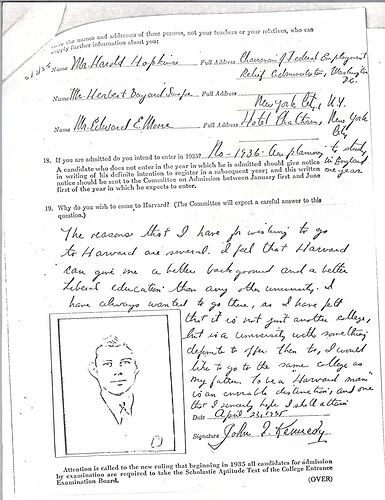 the names and addresses of three persons, not your teachers or your relatives, who can
supply further information about you:
Name Mr. Harold Hopkins Full Address Chairman of Federal Employment
Relief Administration, Washington
D.C.
Name Mr. Herbert Bayard Swope Full Address
New York City, N.Y.
Name Mr. Edward E. Moore Full Address Hotel Chatham, New York
City
18. If you are admitted do you intend to enter in 1935? No - 1936. Am planning to study
in England
one year
A candidate who does not enter in the year in which he is admitted should give notice
in writing of his definite intention to register in a subsequent year; and this written
notice should be sent to the Committee on Admission between January first and June
first of the year in which he expects to enter.
19. Why do you wish to come to Harvard? (The Committee will expect a careful answer to this
question.)
The reasons that I have for wishing to go
to Harvard are several. I feel that Harvard
can give me a better background and a better
liberal education than any other university. I
have always wanted to go there, as I have felt
that it is not just another college,
but is a university with something
definite to offer. Then too, I would
like to go to the same college as
my father. To be a "Harvard man"
is an enviable distinction, and one
that I sincerely hope I shall attain.
Date April 23, 1935
Signature John F. Kennedy
Attention is called to the new ruling that beginning in 1935 all candidates for admission
by examination are required to take the Scholastic Aptitude Test of the College Entrance
Examination Board.
(OVER)